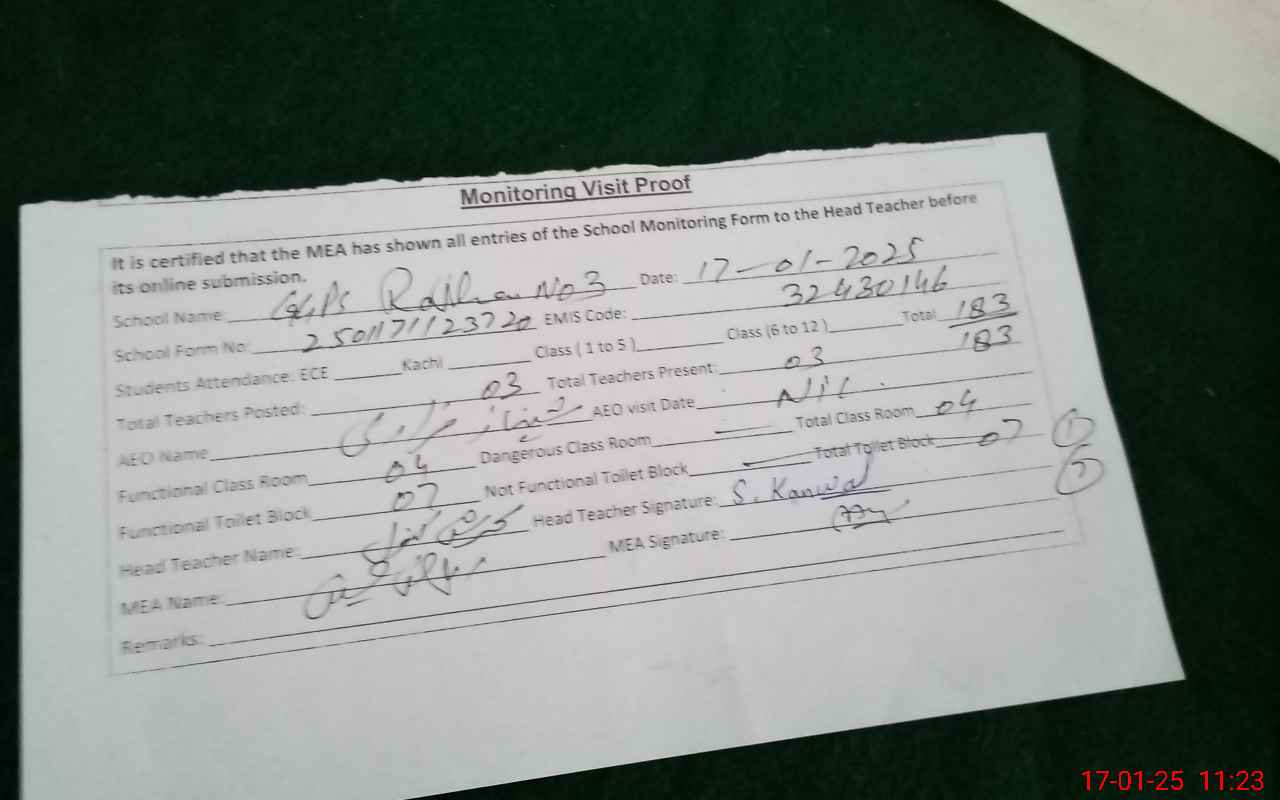 Monitoring Visit Proof
It is certified that the MEA has shown all entries of the School Monitoring Form to the Head Teacher before
its online submission.
School Name: No 3 Date: 17-01-2025
School Form No: EMIS Code: 32430146
Students Attendance: ECE Kachi Class ( 1 to 5 ) Class (6 to 12 ) Total 183
183
Total Teachers Posted: 03 Total Teachers Present: 03
AEO Name AEO visit Date Nil
Functional Class Room 04 Dangerous Class Room — Total Class Room 04
Functional Toilet Block 07 Not Functional Toilet Block — Total Toilet Block 07
Head Teacher Name: Head Teacher Signature: S. Kanwal
MEA Name: MEA Signature:
Remarks:
17-01-25 11:23